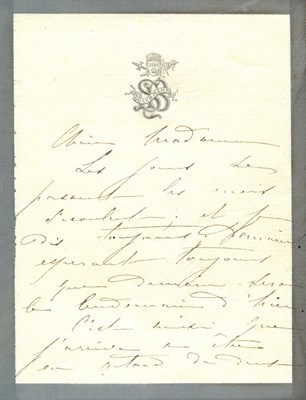 Chère Madame
Les jours se
passent les mois
s'écoulent, et je
dis toujours Demain
espérant toujours
que demain sera
le lendemain d'hier
C'est ainsi que
j'arrive a être
en retard de